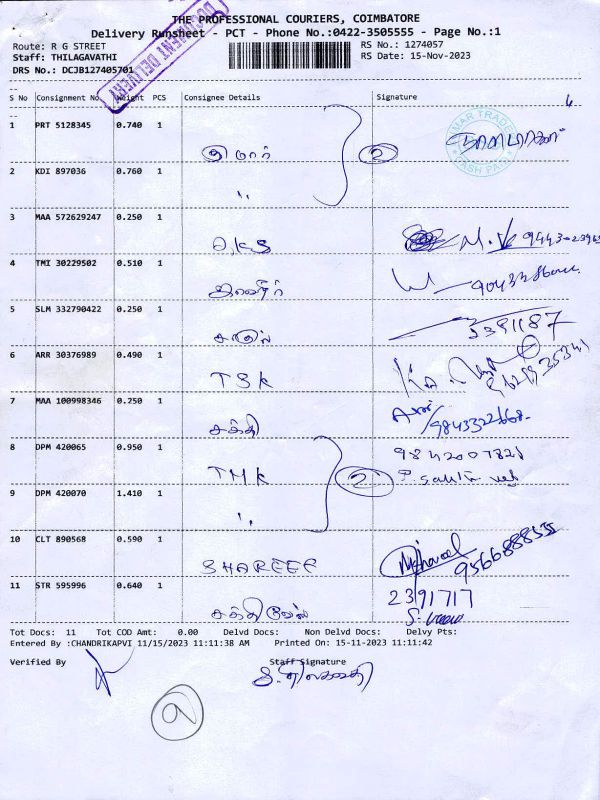 THE PROFESSIONAL COURIERS, COIMBATORE
Delivery Runsheet - PCT - Phone No.:0422-3505555 - Page No.:1
Route: R G STREET RS No.: 1274057
Staff: THILAGAVATHI RS Date: 15-Nov-2023
DRS No.: DCJB127405701
DOCUMENT DELIVERY
S No Consignment No. Weight PCS Consignee Details Signature
1 PRT 5128345 0.740 1
குமார் 2
2 KDI 897036 0.760 1
"
3 MAA 572629247 0.250 1
D.K.S
4 TMI 30229502 0.510 1
5 SLM 332790422 0.250 1
2391187
6 ARR 30376989 0.490 1
TSK
7 MAA 100998346 0.250 1
சக்தி 9843322668
8 DPM 420065 0.950 1 9842007821
TMK 2
9 DPM 420070 1.410 1
"
10 CLT 890568 0.590 1
SHAREEF 9566888535
11 STR 595996 0.640 1 2391717
சக்திவேல்
Tot Docs: 11 Tot COD Amt: 0.00 Delvd Docs: Non Delvd Docs: Delvy Pts:
Entered By :CHANDRIKAPVI 11/15/2023 11:11:38 AM Printed On: 15-11-2023 11:11:42
Verified By Staff Signature
9